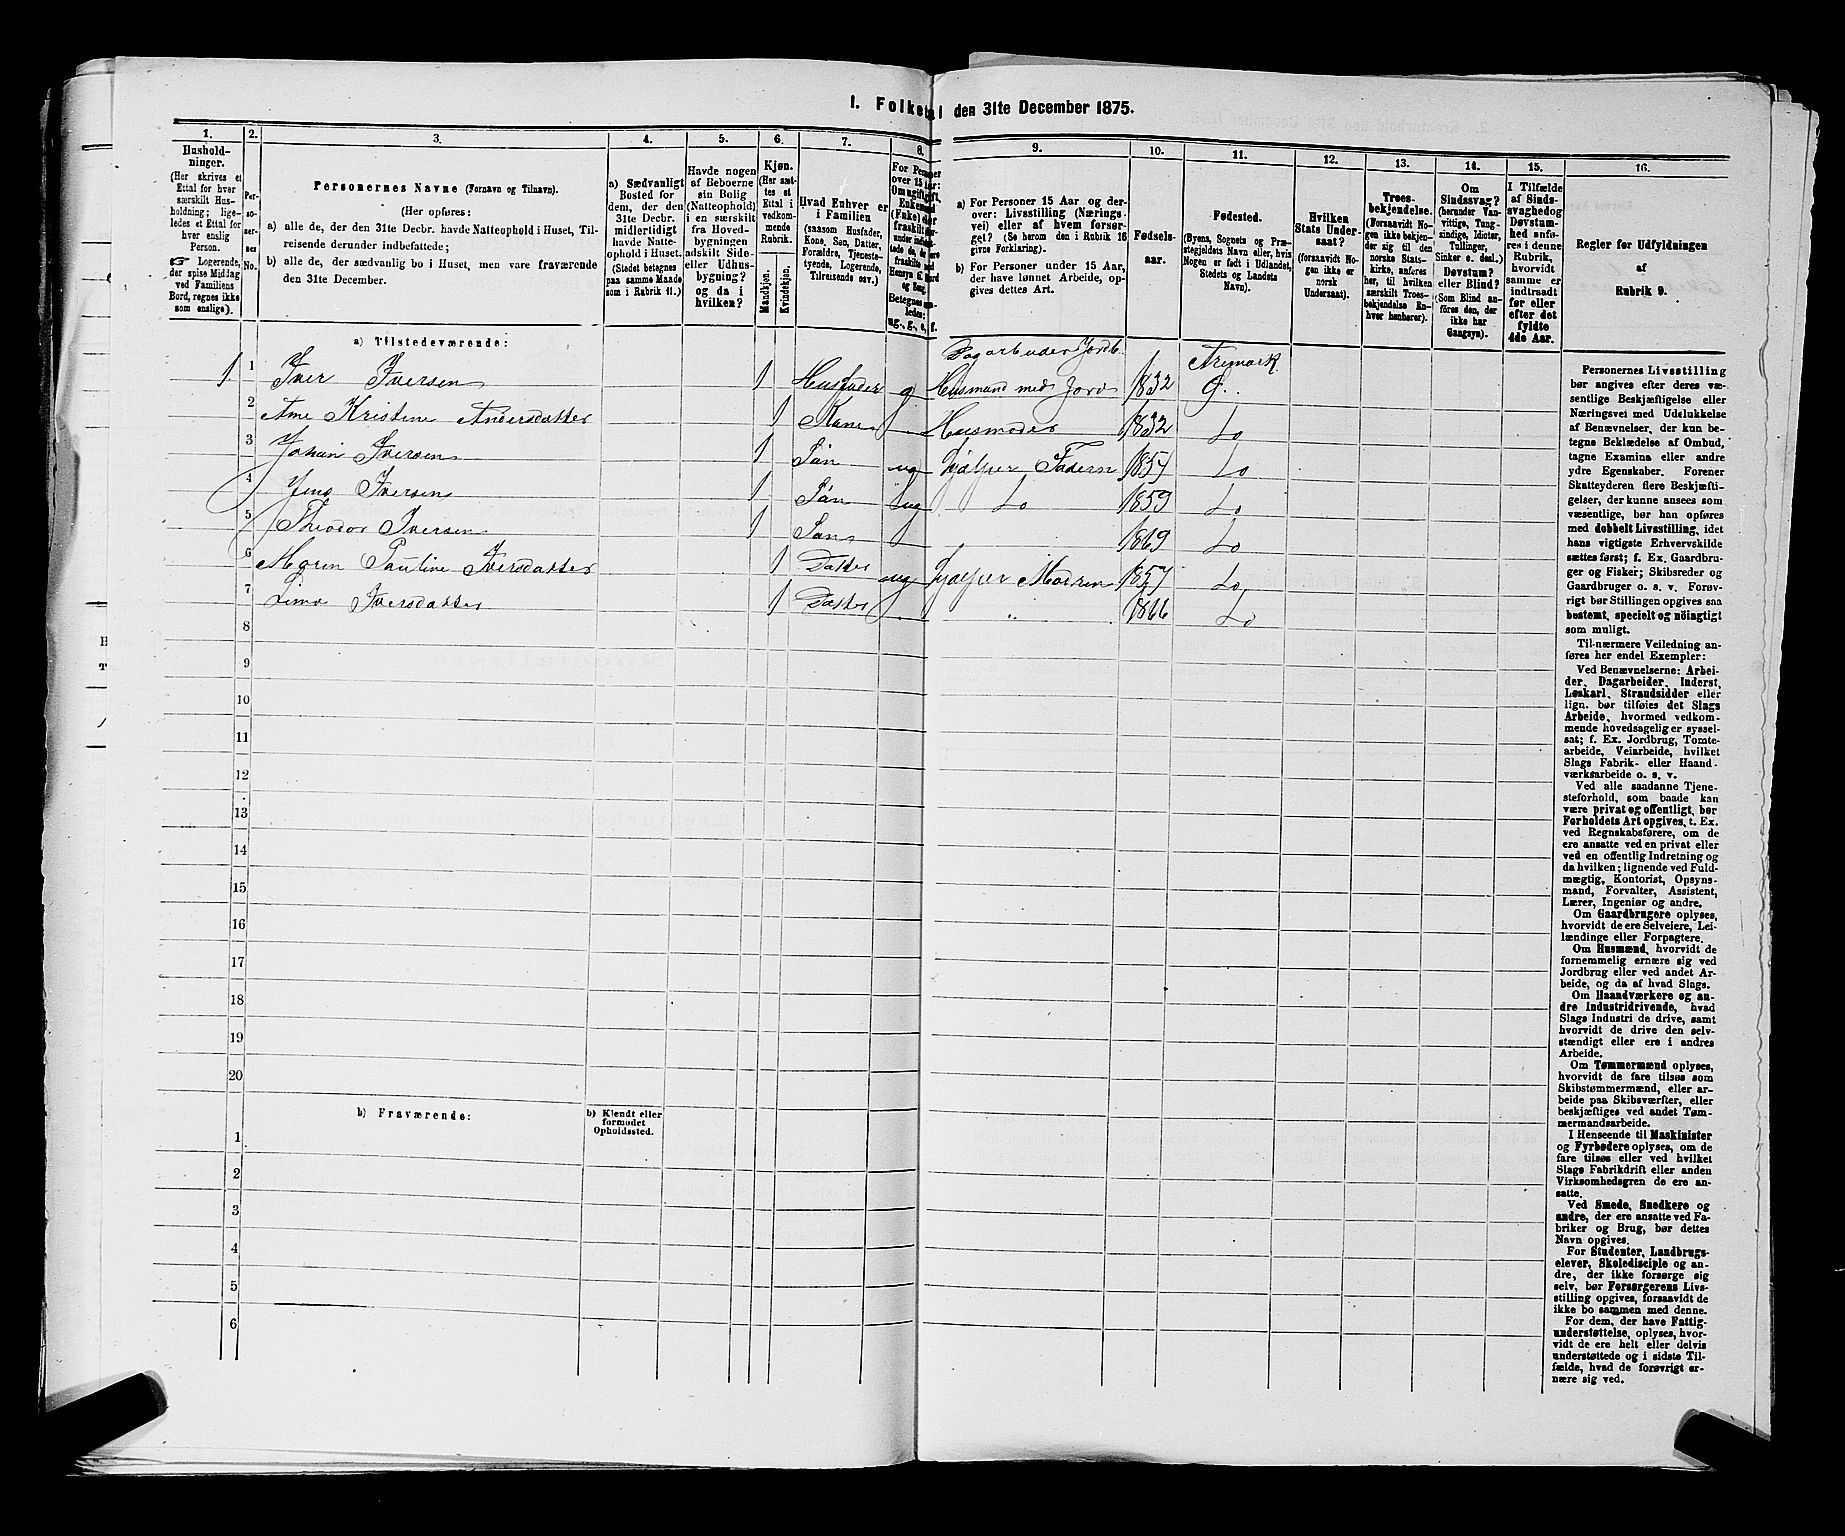 1. Folketal den 31te December 1875.
1.
2.
3.
4.
5.
6.
7.
8.
9.
10.
11.
12.
13.
14.
15.
16.
Husholdninger.
(Her skrives et
Ettal for hver
særskilt Husholdning;
ligeledes et Ettal for
hver enslig
Person.
Logerende,
der spise Middag
ved Familiens
Bord, regnes ikke
som enslige).
Personernes No.
Personernes Navne (Fornavn og Tilnavn).
(Her opføres:
a) alle de, der den 31te Decbr. havde Natteophold i Huset, Tilreisende derunder indbefattede;
b) alle de, der sædvanlig bo i Huset, men vare fraværende
den 31te December.
a) Sædvanligt
Bosted for
dem, der den
31te Decbr.
midlertidigt
havde Natteophold i Huset.
(Stedet betegnes
paa samme Maade
som i Rubrik 11.)
Havde nogen
af Beboerne
sin Bolig
(Natteophold)
i en særskilt
fra Hovedbygningen
adskilt Side- eller Udhusbygning?
og da i
hvilken?
Kjøn.
(Her sættes et
Ettal i
vedkommende
Rubrik.
Mandkjøn.
Kvindekjøn.
Hvad Enhver er
i Familien
(saasom Husfader,
Kone, Søn, Datter,
Forældre, Tjenestetyende, Logerende,
Tilreisende osv.)
a) For Personer 15 Aar og derover: Livsstilling (Næringsvei) eller af hvem forsørget? (Se herom den i Rubrik 16
givne Forklaring).
b) For Personer under 15 Aar,
der have lønnet Arbeide, opgives dettes Art.
Fødselsaar.
Fødested.
(Byens, Sognets og Præstegjeldets Navn eller, hvis
Nogen er født i Udlandet,
Stedets og Landets
Navn).
Hvilken
Stats Undersaat?
(forsaavidt Nogen ikke er
norsk
Undersaat).
Troesbekjendelse.
(Forsaavidt Nogen ikke bekjender sig til den
norske Statskirke, anføres
her, til hvilken
særskilt Troesbekjendelse Enhver henhører).
Om
Sindssvag?
(herunder Vanvittige, Tungsindige, Idioter,
Tullinger,
Sinker o. desl.)
Døvstum?
eller Blind?
(Som Blind anføres den, der
ikke har
Gangsyn).
I Tilfælde
af Sindssvaghed og
Døvstumhed anføres i denne
Rubrik,
hvorvidt
samme er
indtraadt
før eller
efter det
fyldte
4de Aar.
Regler for Udfyldningen
af
Rubrik 9.
a) Tilstedeværende:
Dagarbeider Jordb.
Aremark
1 1 Iver Iversen 1 Husfader g Husmand med Jord 1832 G.
2 Ane Kristine Andersdatter 1 Kone Husmoder 1832 Do
3 Johan Iversen 1 Søn ug Hjælper Faderen 1854 Do
4 Jens Iversen 1 Søn ug Do 1859 Do
5 Theodor Iversen 1 Søn 1869 Do
6 Maren Pauline Iversdatter 1 Datter ug Hjælper Modren 1857 Do
7 Iversdatter 1 Datter " 1866 Do
8
9
10
11
12
13
14
15
16
17
18
19
20
b) Fraværende:
b) Kjendt eller
formodet
Opholdssted.
1
2
3
4
5
6
Personernes Livsstilling
bør angives efter deres væsentlige Beskjæftigelse eller
Næringsvei med Udelukkelse
af Benævnelser, der kun betegne Beklædelse af Ombud,
tagne Examina eller andre
ydre Egenskaber. Forener
Skatteyderen flere Beskjæftigelser, der kunne ansees som
væsentlige, bør han opføres
med dobbelt Livsstilling, idet
hans vigtigste Erhvervskilde
sættes først; f. Ex. Gaardbruger og Fisker; Skibsreder og
Gaardbruger o. s. v. Forøvrigt bør Stillingen opgives saa
bestemt, specielt og nöiagtigt
som muligt.
Til nærmere Veiledning anføres her endel Exempler:
Ved Benævnelserne: Arbeider, Dagarbeider, Inderst,
Løskarl, Strandsidder eller
lign. bør tilføies det Slags
Arbeide, hvormed vedkommende hovedsagelig er sysselsat; f. Ex. Jordbrug, Tomtearbeide, Veiarbeide, hvilket
Slags Fabrik- eller Haandværksarbeide o. s. v.
Ved alle saadanne Tjenesteforhold, som baade kan
være privat og offentligt, bør
Forholdets Art opgives, t. Ex.
ved Regnskabsførere, om de
ere ansatte ved en privat eller
ved en offentlig Indretning og
da hvilken; lignende ved Fuldmægtig, Kontorist, Opsynsmand, Forvalter, Assistent,
Lærer, Ingeniør og andre.
Om Gaardbrugere oplyses,
hvorvidt de ere Selveiere, Leilændinge eller Forpagtere.
Om Husmænd, hvorvidt de
fornemmelig ernære sig ved
Jordbrug eller ved andet Arbeide, og da af hvad Slags.
Om Haandværkere og andre Industridrivende, hvad
Slags Industri de drive, samt
hvorvidt de drive den selvstændigt eller ere i andres
Arbeide.
Om Tømmermænd oplyses,
hvorvidt de fare tilsøs som
Skibstømmermænd, eller arbeide paa Skibsværfter, eller
beskjæftiges ved andet Tømmermandsarbeide.
I Henseende til Maskinister
og Fyrbødere oplyses, om de
fare tilsøs eller ved hvilket
Slags Fabrikdrift eller anden
Virksomhedsgren de ere ansatte.
Ved Smede, Snedkere og
andre, der ere ansatte ved Fabriker og Brug, bør dettes
Navn opgives.
For Studenter, Landbrugselever, Skoledisciple og andre, der ikke forsørge sig
selv, bør Forsørgerens Livsstilling opgives, forsaavidt de
ikke bo sammen med denne.
For dem, der have Fattigunderstøttelse, oplyses, hvorvidt de ere helt eller delvis
understøttede og i sidste Tilfælde, hvad de forøvrigt ernære sig ved.